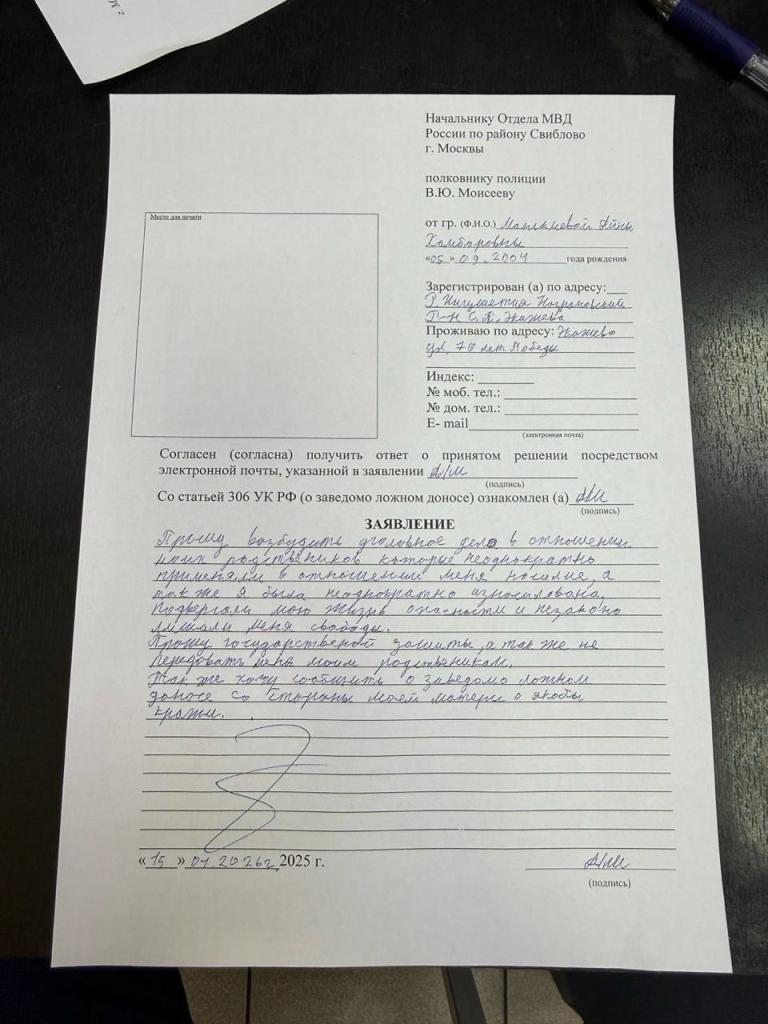 г. М
Начальнику Отдела МВД
России по району Свиблово
г. Москвы
полковнику полиции
В.Ю. Моисееву
Место для печати
от гр. (Ф.И.О.) Манкиевой Айны
Хамбаровны
«05» 09.2004 года рождения
Зарегистрирован (а) по адресу:
Р. Ингушетия Назрановский
Р-н С.П. Экажево
Проживаю по адресу: Экажево
ул. 70 лет Победы
Индекс:
№ моб. тел.:
№ дом. тел.:
E- mail
(электронная почта)
Согласен (согласна) получить ответ о принятом решении посредством
электронной почты, указанной в заявлении
(подпись)
Со статьей 306 УК РФ (о заведомо ложном доносе) ознакомлен (а)
(подпись)
ЗАЯВЛЕНИЕ
Прошу возбудить уголовное дело в отношении
моих родственников которые неоднократно
применяли в отношении меня насилие, а
так же я была неоднократно изнасилована,
подвергали мою жизнь опасности и незаконо
лишали меня свободы.
Прошу государственной защиты, а так же не
передовать меня моим родственикам.
Так же хочу сообщить о заведомо ложном
доносе со стороны моей матери о якобы
кражи.
«15» 01.2026г. 2025 г.
(подпись)